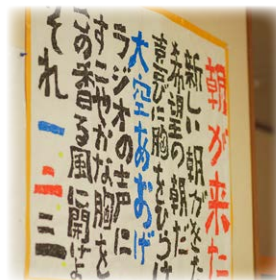 朝が来た
新しい朝がきた
希望の朝だ
喜びに胸をひらけ
大空あおげ
ラジオの声に
すこやかな胸を
この香る風に開けよ
それ一二三